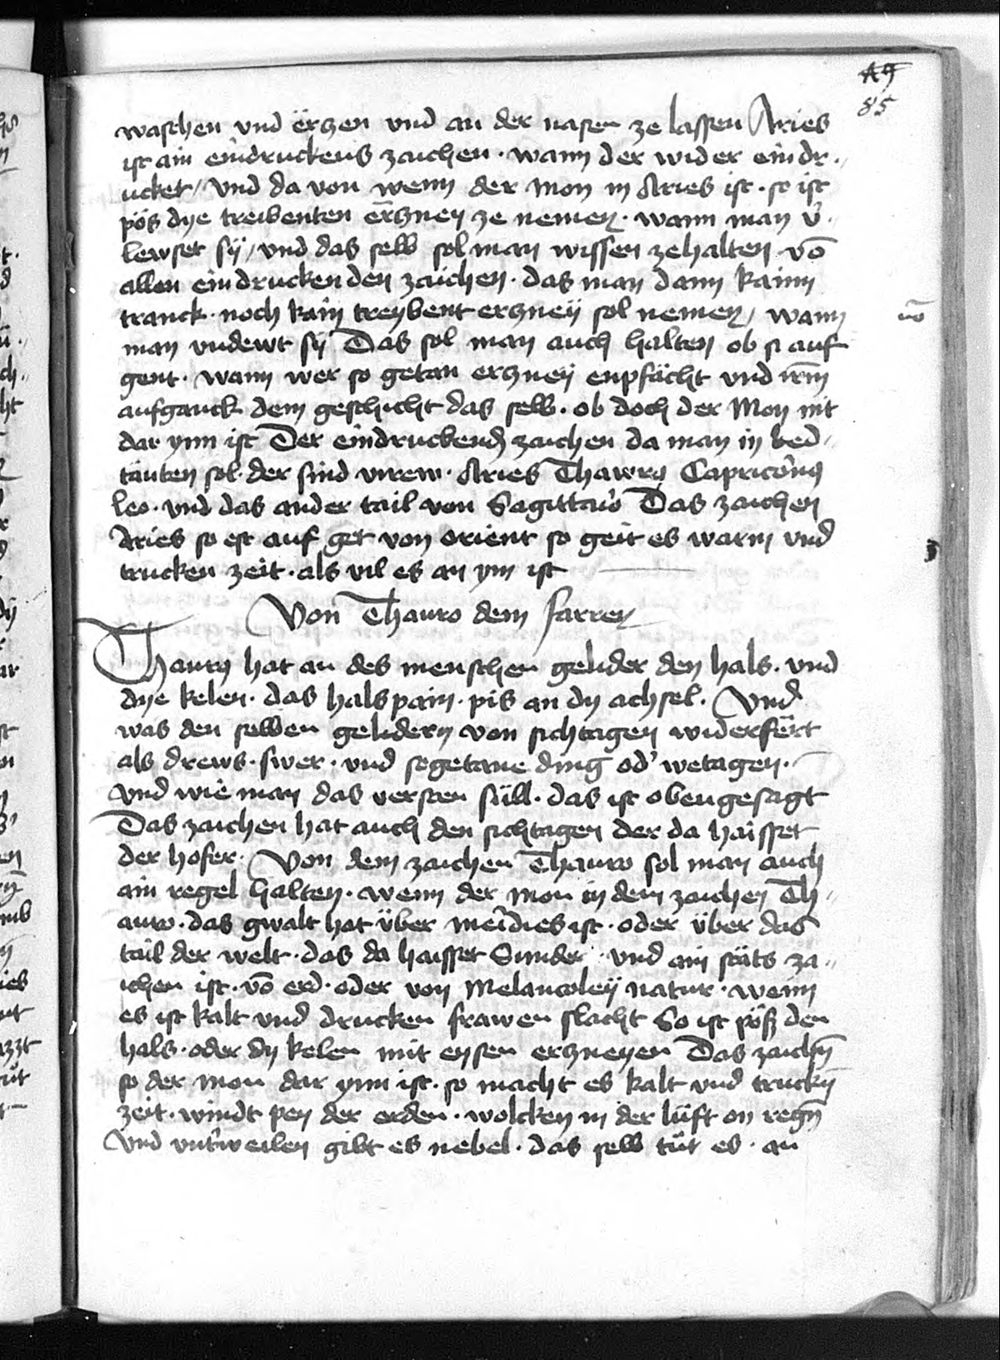 49
85
waschen vnd ërtzen vnd an der nasen ze lassen Aries
ist ain eindruckens zaichen · wann der wider eindr-
ucket / vnd da von wenn der Mon in Aries ist · so ist
pös dye treibenten ertzney ze nemen · wann man v̄-
lewset sy / vnd das selb sol man wissen zehalten vō
allen eindruckenden zaichen · das man dann kainn
tranck · noch kain treybent ertzney sol nemen / wann
man vndewt sy Das sol man auch halten ob si auf
gent · wann wer so getan ertzney enpfächt vnd irm̄
aufganck dem geschicht das selb · ob doch der Mon nit
dar ynn ist Der eindruckend zaichen da man in bed-
täuten sol · der sind vierew · Aries Thawrꝯ Capricornꝯ
leo · vnd das ander tail von Sagittario Das zaichen
Aries so est auf get von orient so geit es warm vnd
trucken zeit · als vil es an ym ist
Von Thauro dem farren
Thaurꝯ hat an des menschen gelider den hals · vnd
dye kelen · das halspain · pis an dy achsel · Vnd
was den selben gelidern von sichtagen widerfert
als drews · swer · vnd sogetane ding od' wetagen ·
vnd wie man das versten süll · das ist obengesagt
Das zaichen hat auch den sichtagen der da haisset
der hofer · Von dem zaichen Thauro sol man auch
ain regel halten · wenn der mon in dem zaichen Th-
auro · das gwalt hat über meridies ist · oder über das
tail der welt · das da haisset Sunder · vnd ain stäts za-
ichen ist · vō erd · oder von Melancoley natur · wenn
es ist kalt vnd drucken frawen slacht So ist pöß den
hals · oder dy kelen mit eysen ertzneyen Das zaichn̄
so der mon dar ynn ist · so macht es kalt vnd truckn̄
zeit · windt pey der erden · wolcken in der lüft on regn̄
vnd vnt'weilen gibt es nebel · das selb tüt es · an